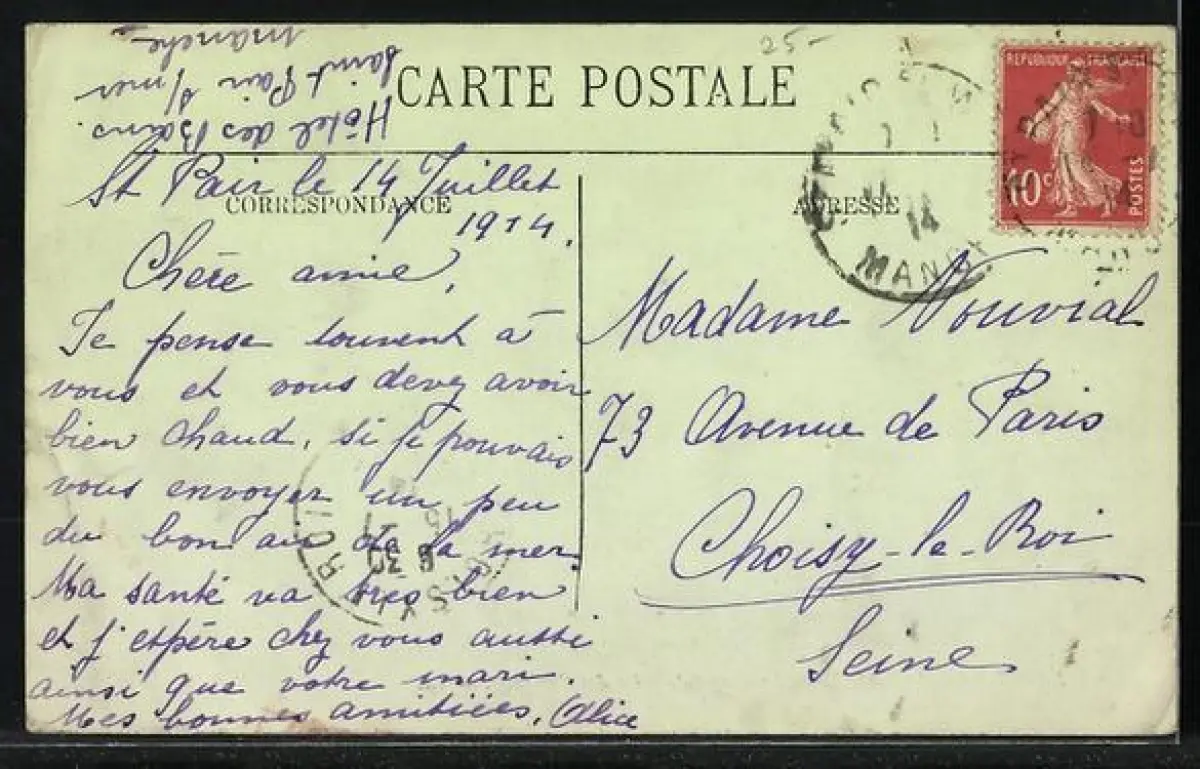 25-
CARTE POSTALE
Hôtel des Bains.
Saint Pair s/mer
Manche
REPUBLIQUE FRANÇAISE
10c
POSTES
14
MANCHE
CORRESPONDANCE
ADRESSE
St Pair le 14 Juillet
1914.
Chère amie,
Je pense souvent à
vous et vous devez avoir
bien chaud, si je pouvais
vous envoyer un peu
du bon air de la mer.
Ma santé va très bien
et j'espère chez vous aussi
ainsi que votre mari.
Mes bonnes amitiées, Alice
Madame Vouvial
73 Avenue de Paris
Choisy-le-Roi
Seine